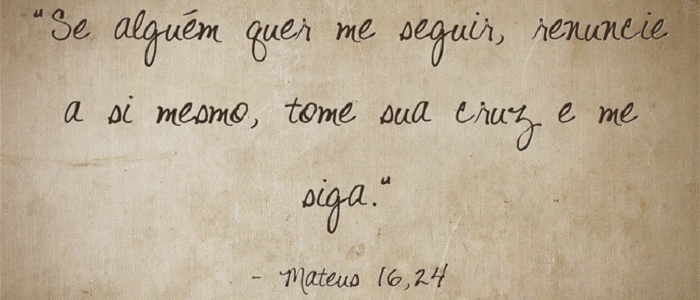 "Se alguém quer me seguir, renuncie
a si mesmo, tome sua cruz e me
siga."
- Mateus 16,24